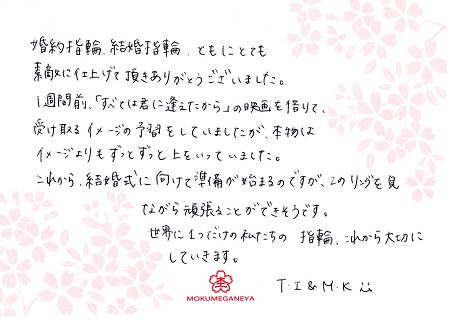 婚約指輪、結婚指輪、ともにとても
素敵に仕上げて頂きありがとうございました。
1週間前、「すべては君に逢えたから」の映画を借りて、
受け取るイメージの予習をしていましたが、本物は
イメージよりもずっとずっと上をいっていました。
これから、結婚式に向けて準備が始まるのですが、このリングを見
ながら頑張ることができそうです。
世界に1つだけの私たちの 指輪、これから大切に
していきます。
T・I & M・K
MOKUMEGANEYA